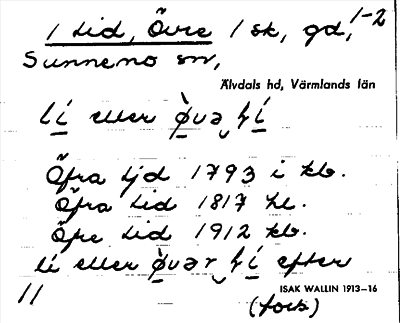 1 Lid, Övre 1 sk, gd, 1-2
Sunnemo sn,
Älvdals hd, Värmlands län
lí eller
Öfra Ljd 1793 i kb.
Öfra Lid 1817 hl.
Öfre Lid 1912 kb.
lí eller efter
ISAK WALLIN 1913–16
11
(forts)